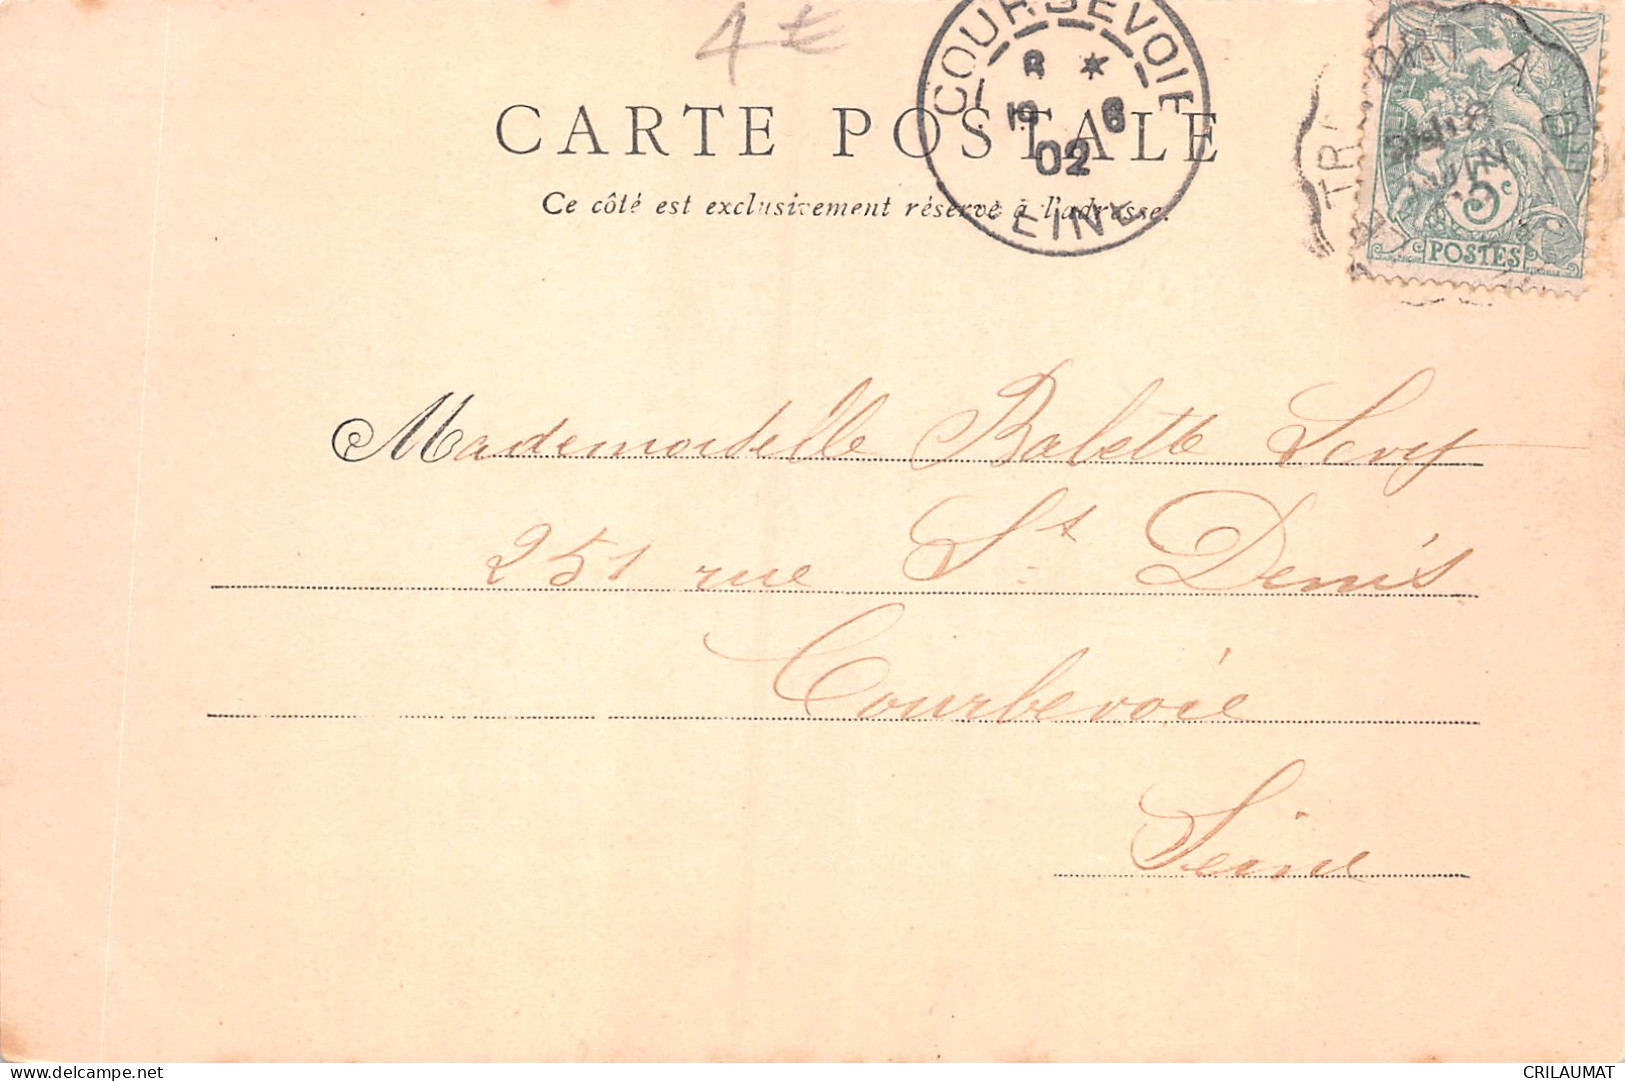 4 €
CARTE POSTALE
Ce côté est exclusivement réservé à l'adresse.
COURBEVOIE
02
SEINE
5c
POSTES
Mademoiselle Babette Levy
251 rue St Denis
Courbevoie
Seine
www.delcampe.net
CRILAUMAT